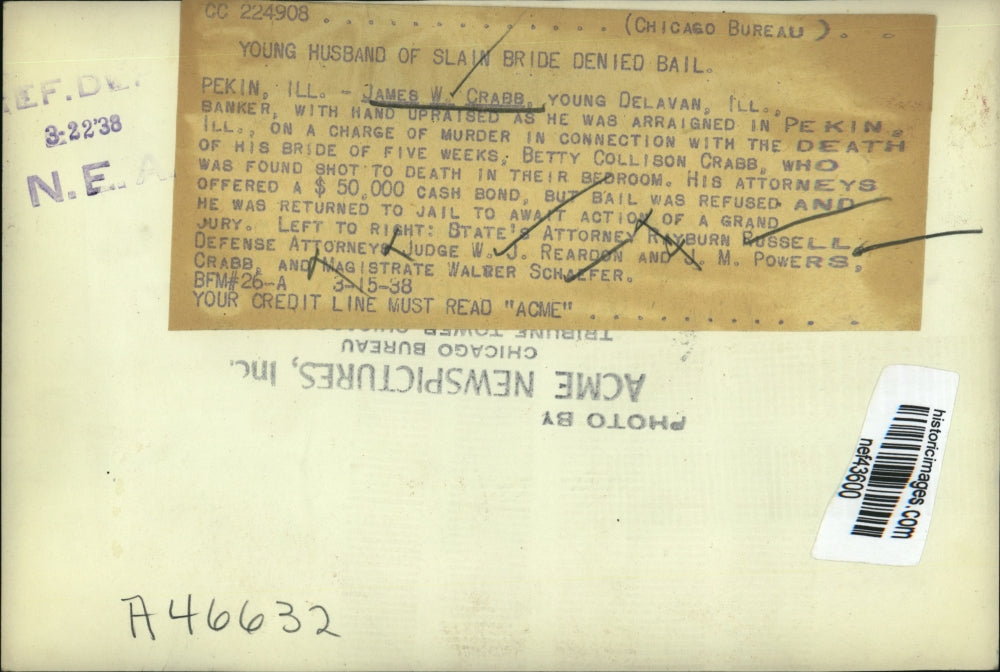 CC 224908 . . . . . . . . . . . . (CHICAGO BUREAU). . .
YOUNG HUSBAND OF SLAIN BRIDE DENIED BAIL.
PEKIN, ILL. - JAMES W. CRABB, YOUNG DELAVAN, ILL.,
BANKER, WITH HAND UPRAISED AS HE WAS ARRAIGNED IN PEKIN,
ILL., ON A CHARGE OF MURDER IN CONNECTION WITH THE DEATH
OF HIS BRIDE OF FIVE WEEKS, BETTY COLLISON CRABB, WHO
WAS FOUND SHOT TO DEATH IN THEIR BEDROOM. HIS ATTORNEYS
OFFERED A $50,000 CASH BOND, BUT BAIL WAS REFUSED AND
HE WAS RETURNED TO JAIL TO AWAIT ACTION OF A GRAND
JURY. LEFT TO RIGHT: STATE'S ATTORNEY RAYBURN RUSSELL,
DEFENSE ATTORNEYS JUDGE W. J. REARDON AND M. POWERS,
CRABB, AND MAGISTRATE WALBER SCHAEFER.
BFM#26-A 3-15-38
YOUR CREDIT LINE MUST READ "ACME" . . . . . . . . . . .
REF. DE
3-22'38
N. E. A.
PHOTO BY
ACME NEWSPICTURES, Inc.
CHICAGO BUREAU
TRIBUNE TOWER
historicimages.com
nef43600
A46632